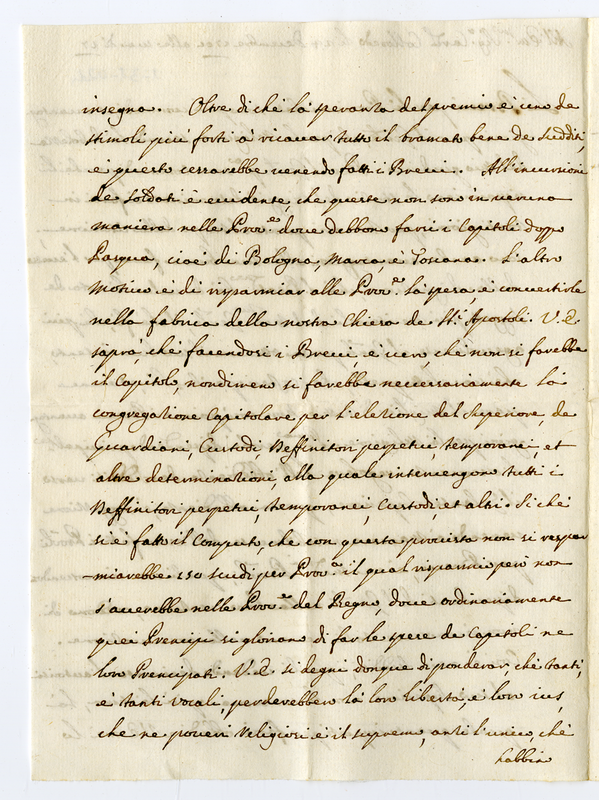 insegna. Oltre di che la speranza del premio è uno de
stimoli più forti à ricavar tutto il bramato bene de sudditi,
e questo cessarebbe venendo fatti i Brevi. All'incursioni
de soldati è evidente, che queste non sono in veruna
maniera nelle Prov.ᵉ dove debbono farsi i Capitoli doppo
Pasqua, cioè di Bologna, Marca, e Toscana. L'altro
motivo è di risparmiar alle Prov.ᵉ la spesa, e convertirle
nella fabrica della nostra Chiesa de Sti. Apostoli. V.E.
saprà, che facendosi i Brevi è vero, che non si farebbe
il Capitolo, nondimeno si farebbe necessariamente la
congregazione Capitolare per l'elezione del Superiore, de
Guardiani, Custodi, Deffinitori perpetui, temporanei, et
altre determinazioni, alla quale intervengono tutti i
Deffinitori perpetui, temporanei, Custodi, et altri. Si che
si è fatto il Computo, che con questa provista non si rispar
miarebbe 150 scudi per Prov.ᵃ il qual risparmio però non
s'averebbe nelle Prov.ᵉ del Regno dove ordinariamente
quei Prencipi si gloriano di far le spese de Capitoli ne
loro Prencipati. V.E. si degni donque di ponderar, che tanti,
e tanti Vocali, perderebbero la loro libertà, e loro ius,
che ne poveri Religiosi è il supremo, anzi l'unico, che
habbin